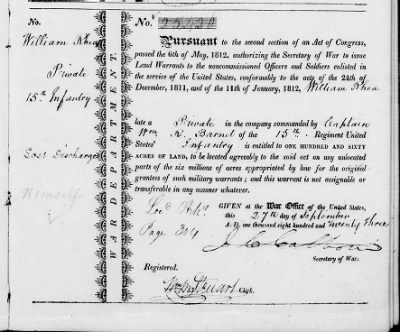 No.
William Rhea
Private
15th Infantry
Lost Discharge
Himself
WAR DEPARTMENT.
No.
Pursuant to the second section of an Act of Congress,
passed the 6th of May, 1812, authorizing the Secretary of War to issue
Land Warrants to the noncommissioned Officers and Soldiers enlisted in
the service of the United States, conformably to the acts of the 24th of
December, 1811, and of the 11th of January, 1812, William Rhea
late a Private in the company commanded by Captain
Wm. R. Barnet of the 15th. Regiment United
States' Infantry, is entitled to ONE HUNDRED AND SIXTY
ACRES OF LAND, to be located agreeably to the said act on any unlocated
parts of the six millions of acres appropriated by law for the original
grantees of such military warrants; and this warrant is not assignable or
transferable in any manner whatever.
GIVEN at the War Office of the United States,
this 27th day of September
A. D. one thousand eight hundred and Twenty Three
Page
J. C. Calhoun
Secretary of War.
Registered.
Stuart Clerk.